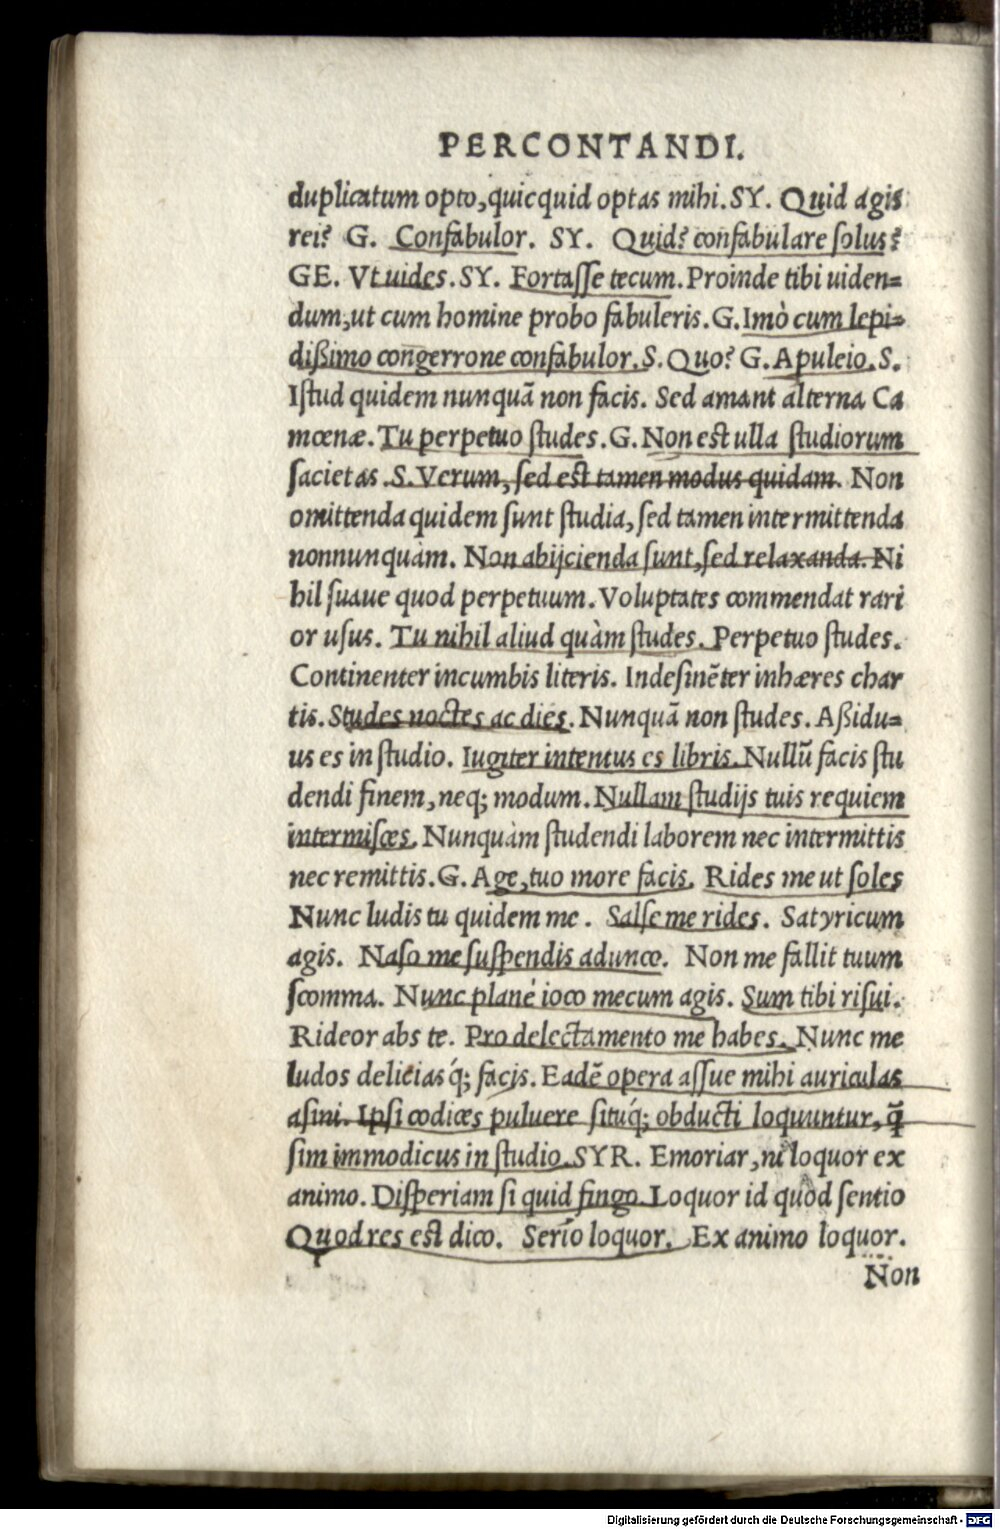 PERCONTANDI.
duplicatum opto, quicquid optas mihi. SY. Quid agis
rei? G. Confabulor. SY. Quid? confabulare solus?
GE. Vt uides. SY. Fortasse tecum. Proinde tibi uiden=
dum, ut cum homine probo fabuleris. G. Imò cum lepi=
dißimo congerrone confabulor. S. Quo? G. Apuleio. S.
Istud quidem nunquã non facis. Sed amant alterna Ca
mœnæ. Tu perpetuo studes. G. Non est ulla studiorum
sacietas. S. Verum, sed est tamen modus quidam. Non
omittenda quidem sunt studia, sed tamen intermittenda
nonnunquàm. Non abijcienda sunt, sed relaxanda. Ni
hil suaue quod perpetuum. Voluptates commendat rari
or usus. Tu nihil aliud quàm studes. Perpetuo studes.
Continenter incumbis literis. Indesinẽter inhæres char
tis. Studes noctes ac dies. Nunquã non studes. Aßidu=
us es in studio. Iugiter intentus es libris. Nullũ facis stu
dendi finem, neq; modum. Nullam studijs tuis requiem
intermisces. Nunquàm studendi laborem nec intermittis
nec remittis. G. Age, tuo more facis. Rides me ut soles
Nunc ludis tu quidem me. Salse me rides. Satyricum
agis. Naso me suspendis adunco. Non me fallit tuum
scomma. Nunc planè ioco mecum agis. Sum tibi risui.
Rideor abs te. Pro delectamento me habes. Nunc me
ludos deliciasq́; facis. Eadẽ opera assue mihi auriculas
asini. Ipsi codices puluere situq́; obducti loquuntur, q̃
sim immodicus in studio. SYR. Emoriar, ni loquor ex
animo. Disperiam si quid fingo. Loquor id quod sentio
Quod res est dico. Serio loquor. Ex animo loquor.
Non
Digitalisierung gefördert durch die Deutsche Forschungsgemeinschaft - DFG